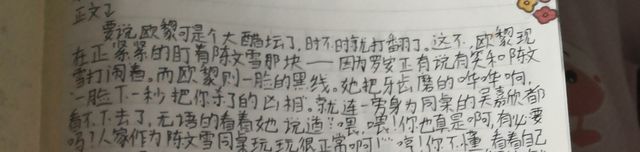 正文了
要说欧黎可是个大醋坛了,时不时就打翻了。这不,欧黎现
在正紧紧的盯着陈文雪那块——因为罗实正有说有笑和陈文
雪打闹着。而欧黎则一脸的黑线。她把牙齿磨的哗哗响,
一脸下一秒把你杀了的凶相。就连一旁身为同桌的吴嘉欣都
看不下去了,无语的看着她说道:“喂,喂!你也真是啊,有必要
吗?人家作为陈文雪同桌玩玩很正常啊!”“哼!你不懂,看着自己